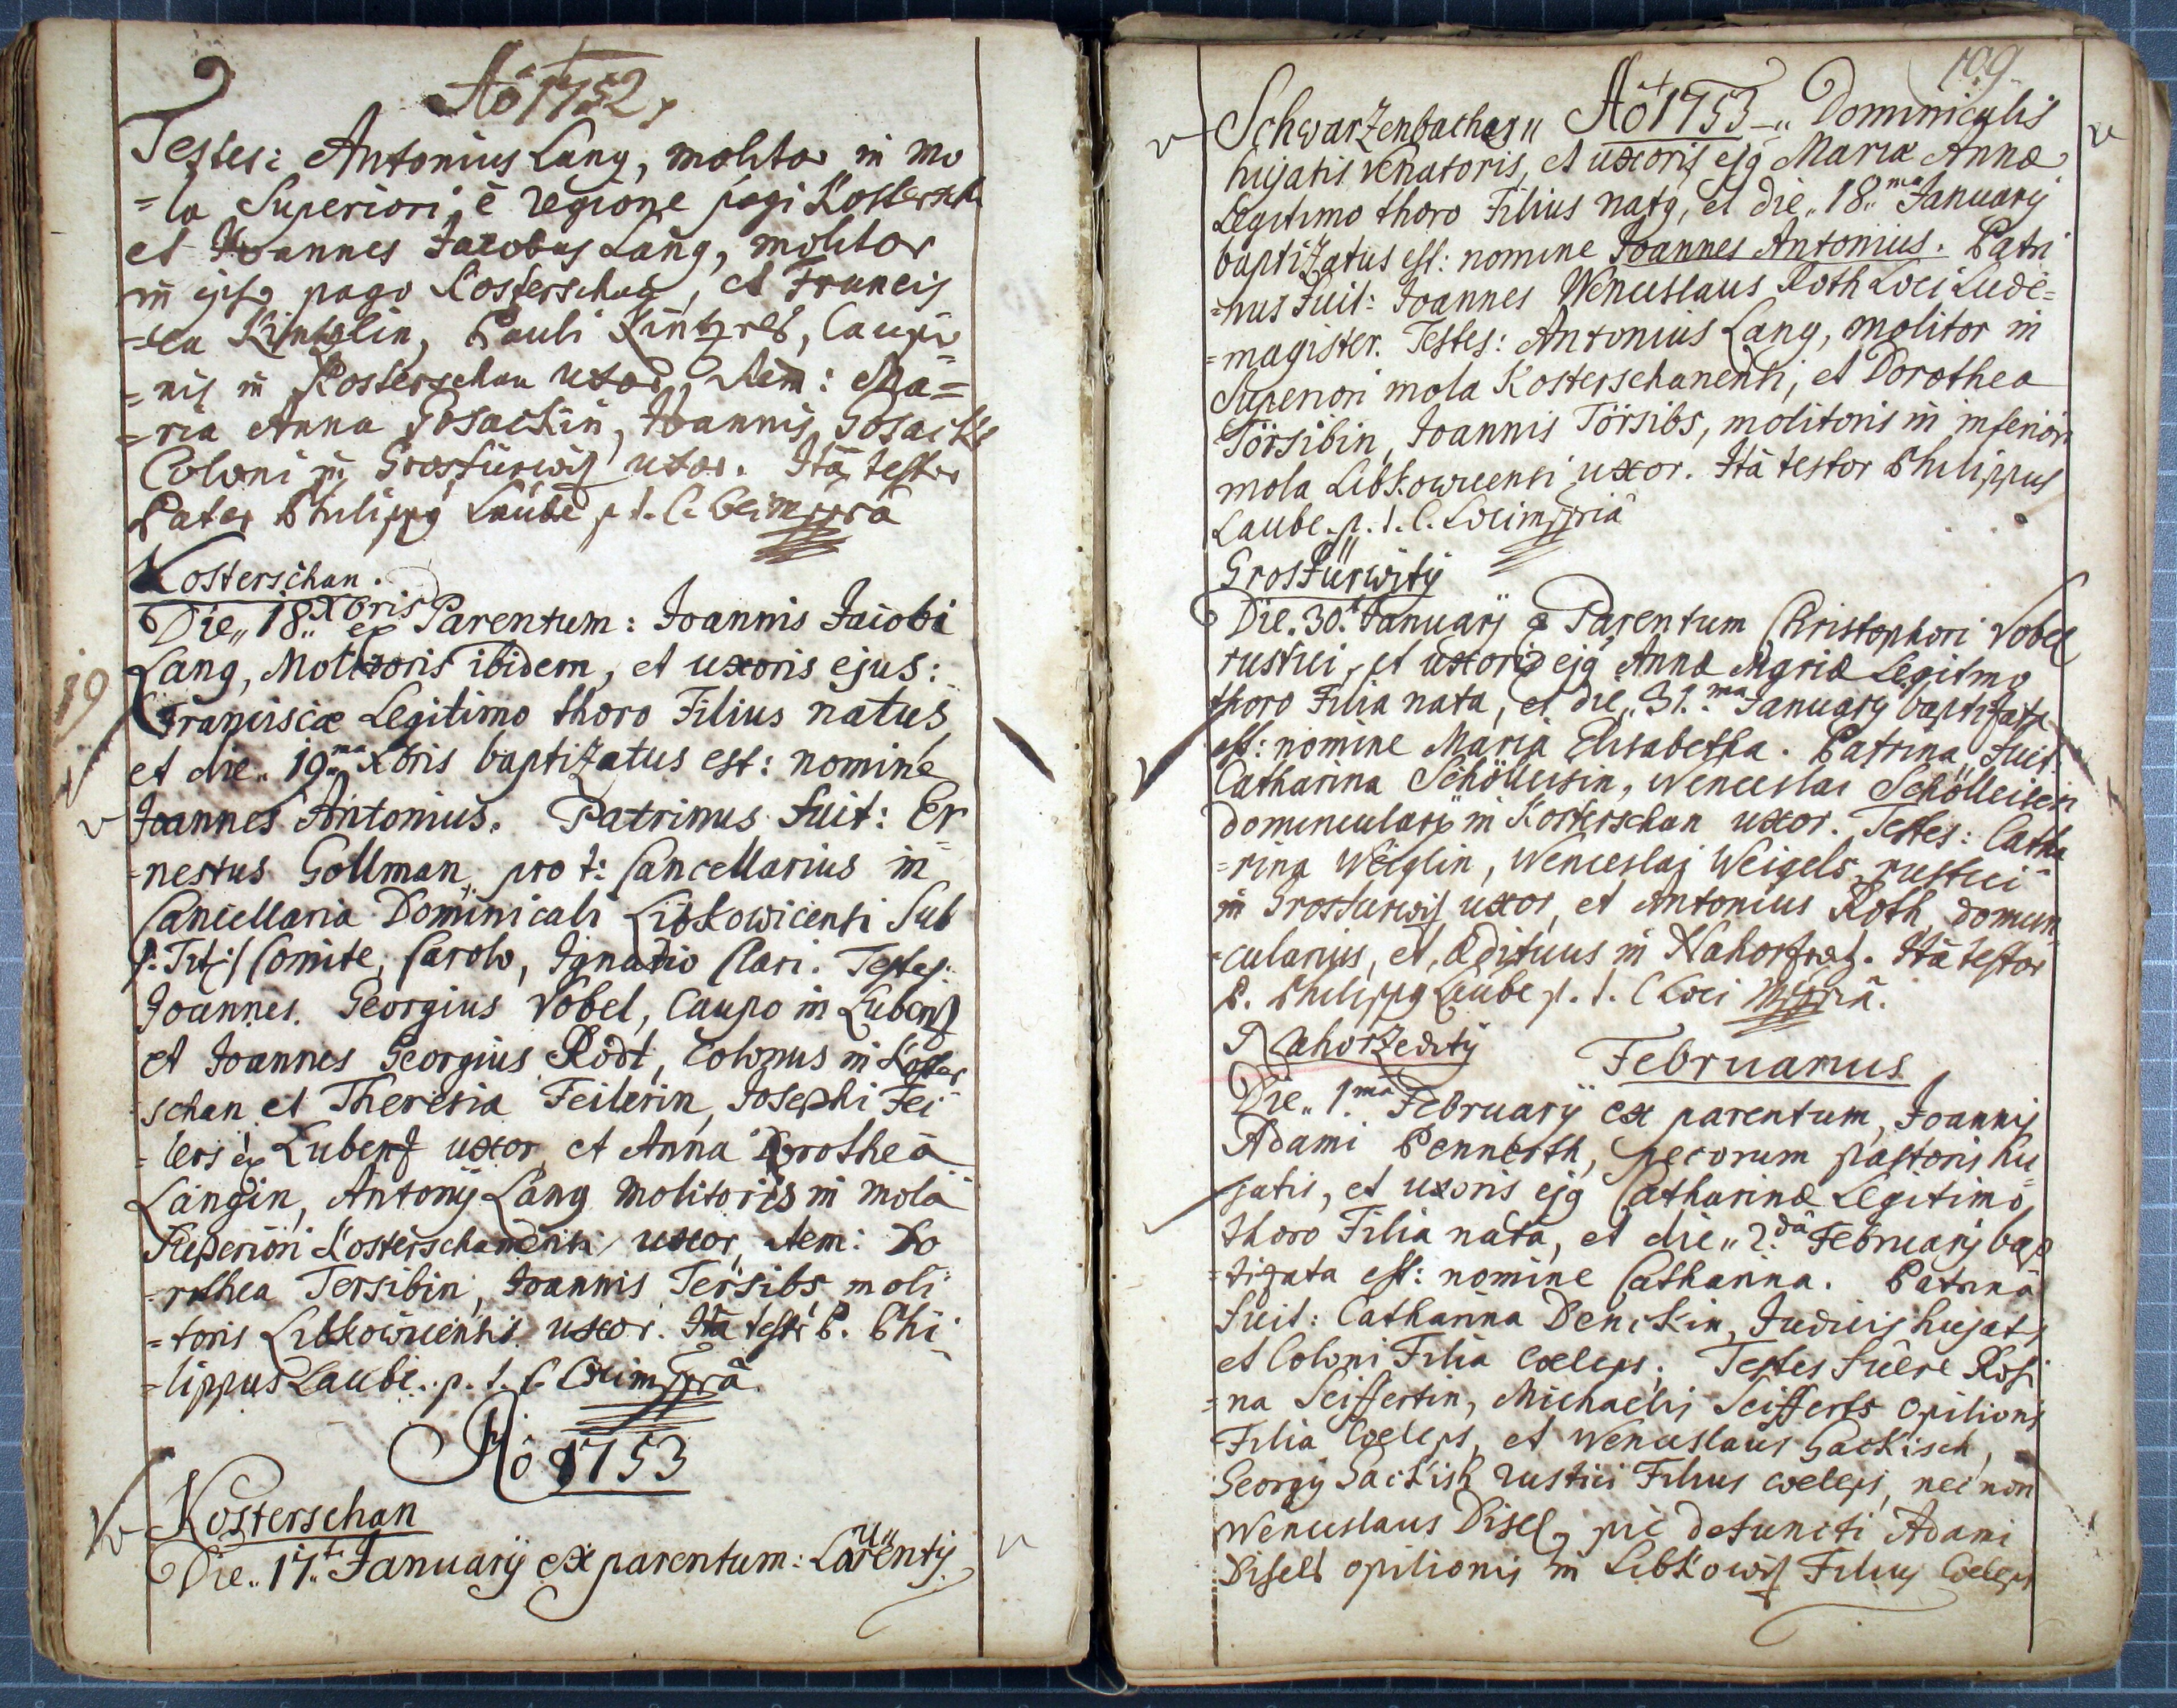 Aō 1752,
Testes: Antonius Lang, molitor in mo
=la Superiori, è regione pagi Kostersch.
et Joannes Jacobus Lang, molitor
in ipso pago Kosterschan, et Francis
=ca Kintzlin, Pauli Kintzels, Caupo
=nis in Kosterschan uxor, Item: Ma=
=ria Anna Gosackin, Joannis Gosacks
Coloni in Grostürwitz uxor. Ità testor
Pater Philippg Laube p. t. C. Loci mppriâ
Kosterschan.
Die „ 18 „ Xbris ex Parentum: Joannis Jacobi
Lang, Molitoris ibidem, et uxoris ejus:
19
Franciscæ Legitimo thoro Filius natus,
et die „ 19 „ ma Xbris baptizatus est: nomine
Joannes Antonius. Patrinus fuit: Er
=nestus Gollman, pro t: Cancellarius in
Cancellaria Dominicali Libkowicensi Sub
S: Tit: Comite, Carolo, Ignatio Clari. Testes:
Joannes Georgius Vobel, Caupo in Lubenz
et Joannes Georgius Rödt, Colonus in Koster
schan et Theresia Feilerin, Josephi Fei
=lers ex Lubenz uxor et Anna Dorothea
Langin, Antonij Lang molitoris in mola
Superiori Kosterschanensi uxor, Item: Do
rothea Tersibin, Joannis Tersibs moli
=toris Libkowicensis uxor. Ità testor P. Phi
=lippus Laube. p. t. C. Loci mppriâ
Aō 1753
Kosterschan
Die „ 17 „ t Januarij ex parentum: Laurentij
109
Aō 1753
Schwarzenbacher „ Dominicalis
hujatis venatoris, et uxoris ejg Mariæ Annæ
Legitimo thoro Filius natg, et die „ 18 „ ma Januarij
baptizatus est: nomine Joannes Antonius. Patri
=nus fuit: Joannes Wenceslaus Roth Loci Ludi=
=magister. Testes: Antonius Lang, molitor in
Superiori mola Kosterschanensi, et Dorothea
Törsibin, Joannis Törsibs, molitoris in inferiori
mola Libkowicensi uxor. Ità testor Philippus
Laube. p. t. C. Loci mppriâ
Grostürwitz
Die. 30 t. Januarij ex Parentum Christophori Vobel
rustici, et uxoris ejg Annæ Mariæ Legitimo
thoro Filia nata, et die „ 31. ma Januarij baptizata
est: nomine Maria Elisabetha. Patrina fuit
Catharina Schölleisin, Wenceslai Schölleisen
domuncularij in Kosterschan uxor. Testes: Catha
=rina Weiglin, Wenceslaj Weigels rustici
in Grosturwitz uxor, et Antonius Roth domun
=cularius, et ædituus in Nahorzedtz. Ità testor
P. Philippg Laube p. t. C. Loci mppriâ.
Nahorzeditz
Februarius
Die „ 1. mâ Februarij ex parentum, Joannis
Adami Pennerth, pecorum pastoris hu
jatis, et uxoris ejg Catharinæ Legitimo
thoro Filia nata, et die „ 2. dâ Februarij bap
=tizata est: nomine Catharina. Patrina
fuit: Catharina Denckin, Judicis hujatis
et Coloni Filia Cœlebs. Testes fuêre Rosi
=na Seiffertin, Michaelis Seifferts opilionis
Filia Cœlebs, et Wenceslaus Gackisch,
Georgij Gackisch rustici Filius cœlebs, nec non
Wenceslaus Disel, piè defuncti Adami
Disels opilionis in Libkowitz Filius Cœlebs